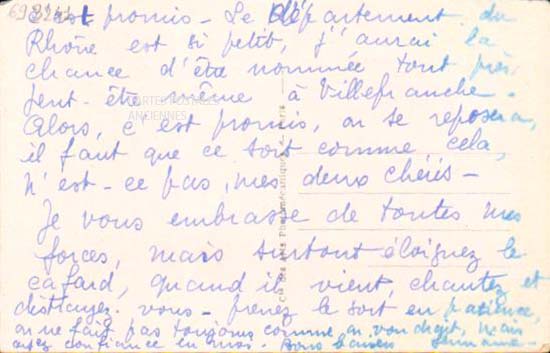 698242
C'est promis - Le département du
Rhône est si petit, j'aurai la
chance d'être nommée tout près,
peut-être même à Villefranche.
CARTES POSTALES
ANCIENNES
Alors, c'est promis, on se reposera,
il faut que ce soit comme cela,
n'est-ce pas, mes deux chéris -
Je vous embrasse de toutes mes
forces, mais surtout éloignez le
cafard, quand il vient, chantez et
distrayez-vous - prenez le sort en patience,
on ne fait pas toujours comme on voudrait, mais
ayez confiance en moi. Bons baisers